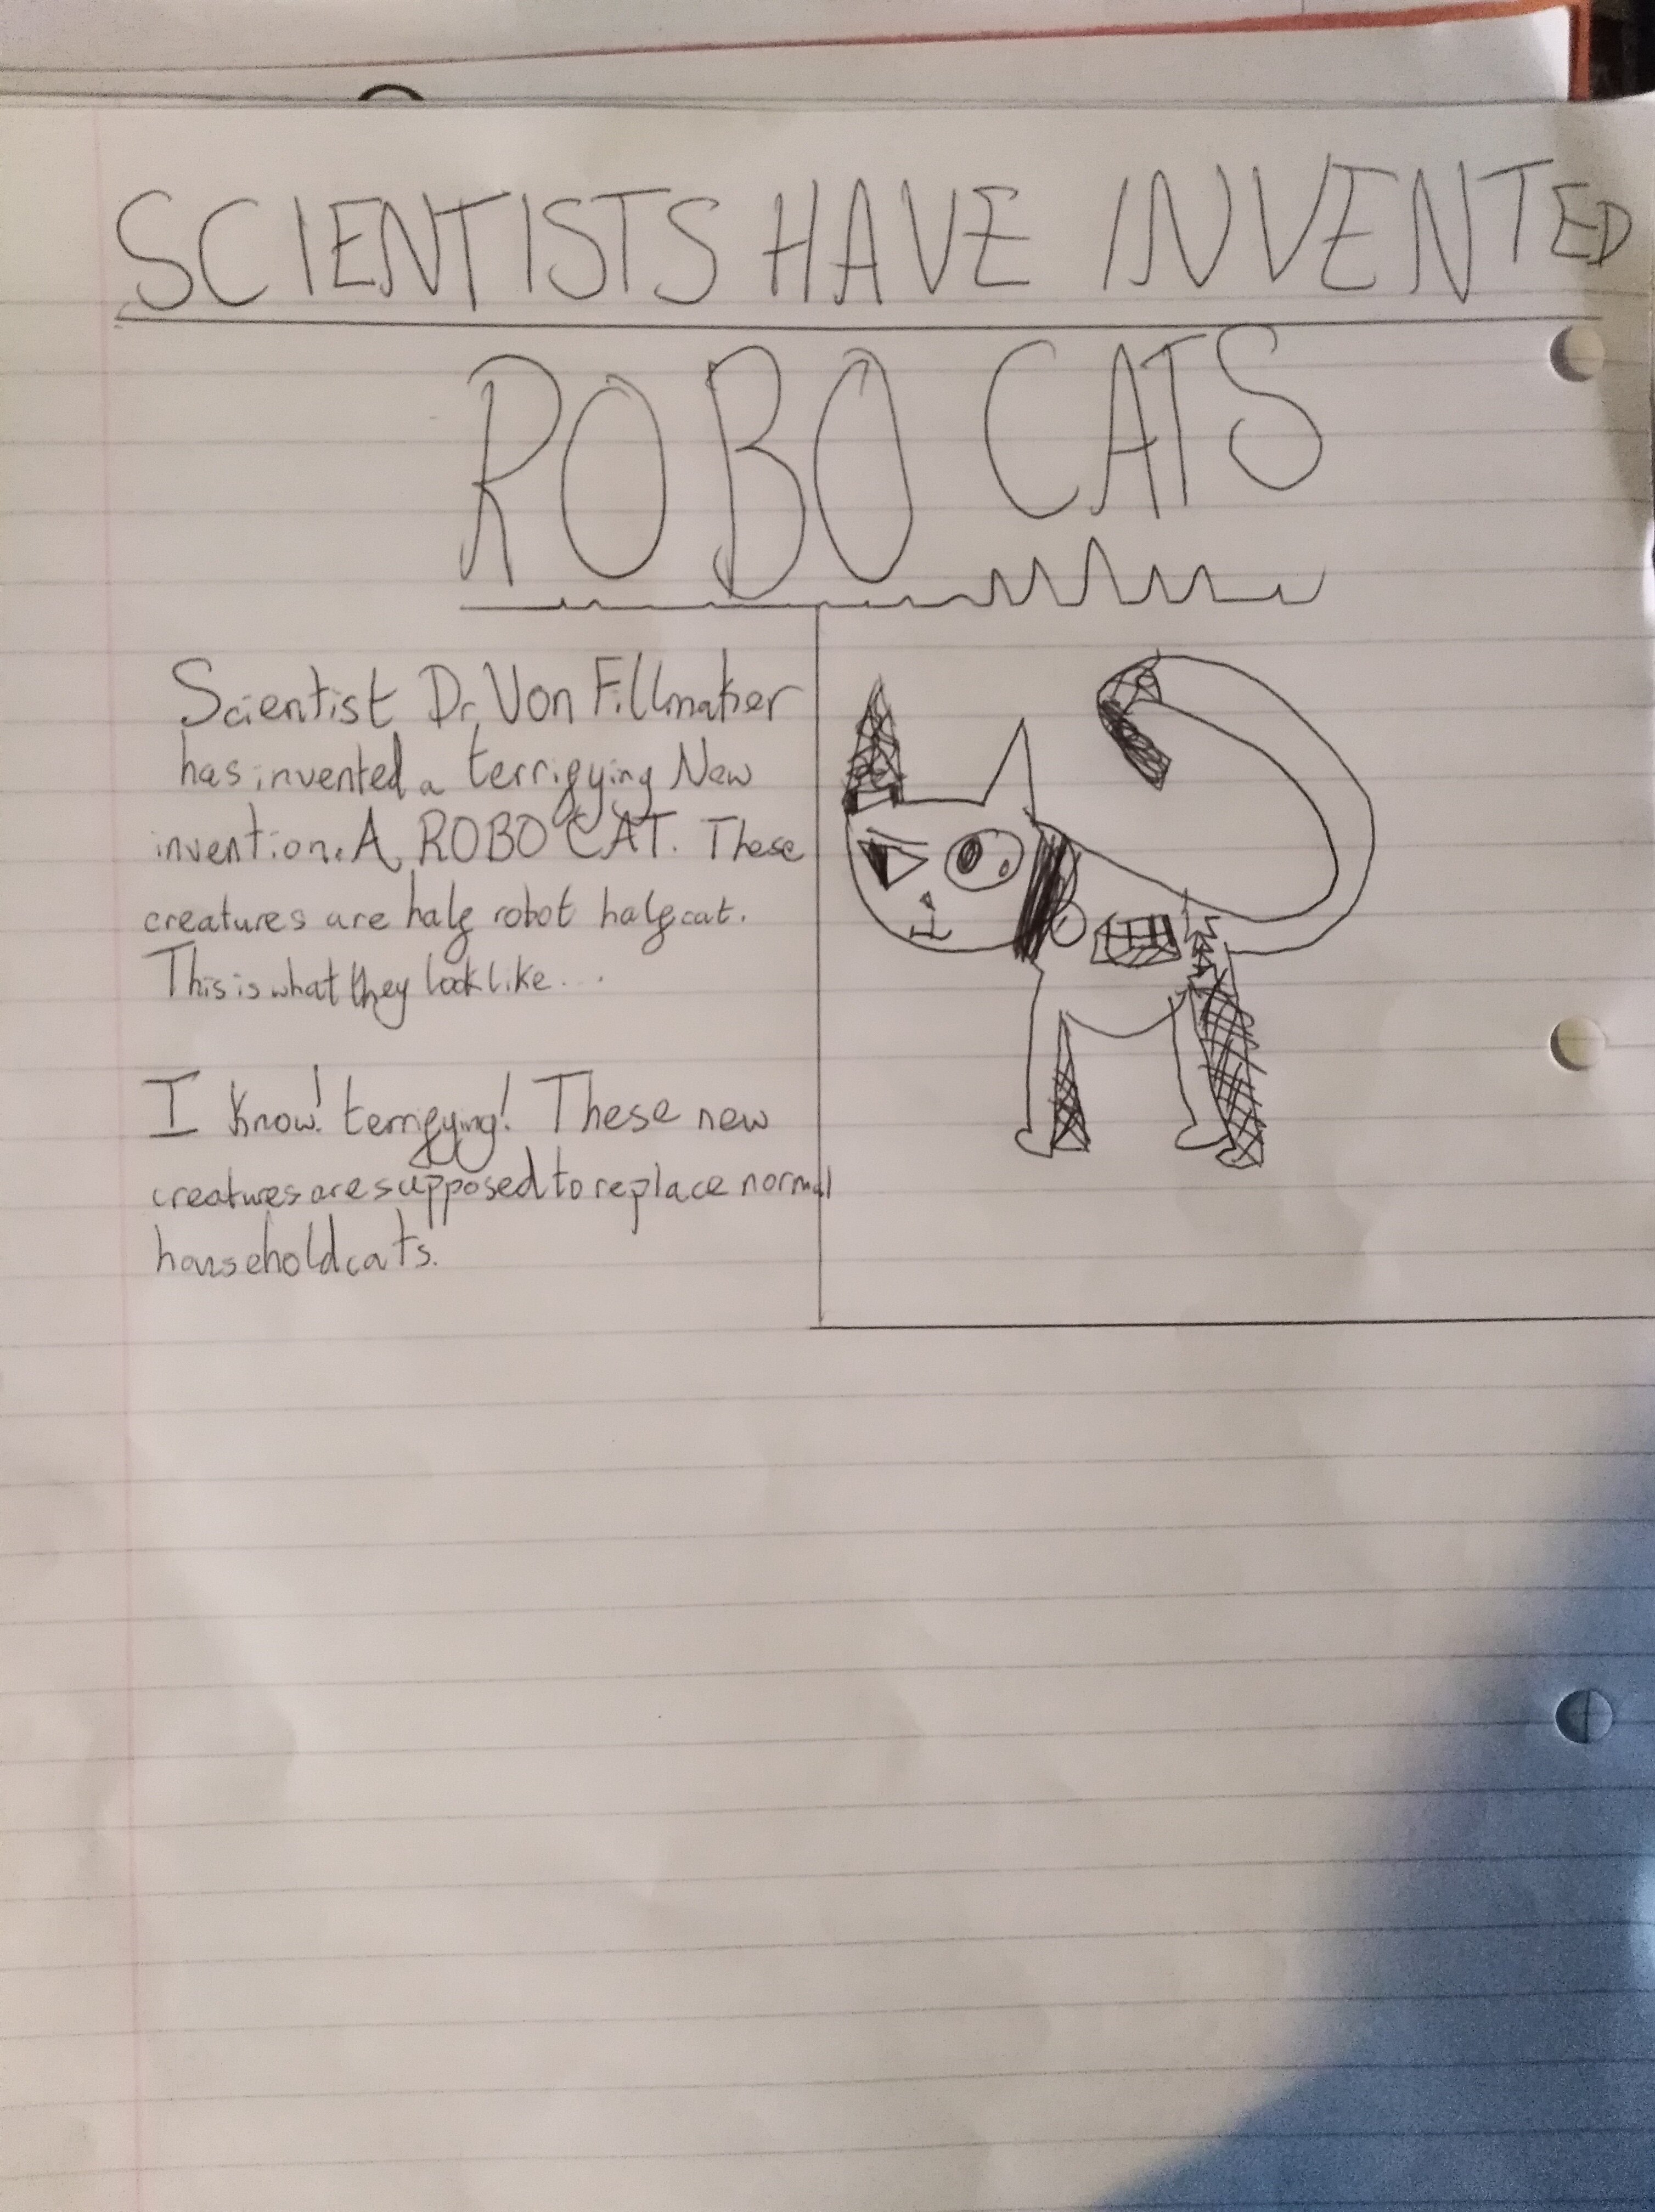 SCIENTISTS HAVE INVENTED
ROBO CATS
Scientist Dr. Von Fillmaker
has invented a terrifying New
invention. A ROBO CAT. These
creatures are half robot half cat.
This is what they look like...
I know! terrifying! These new
creatures are supposed to replace normal
household cats.